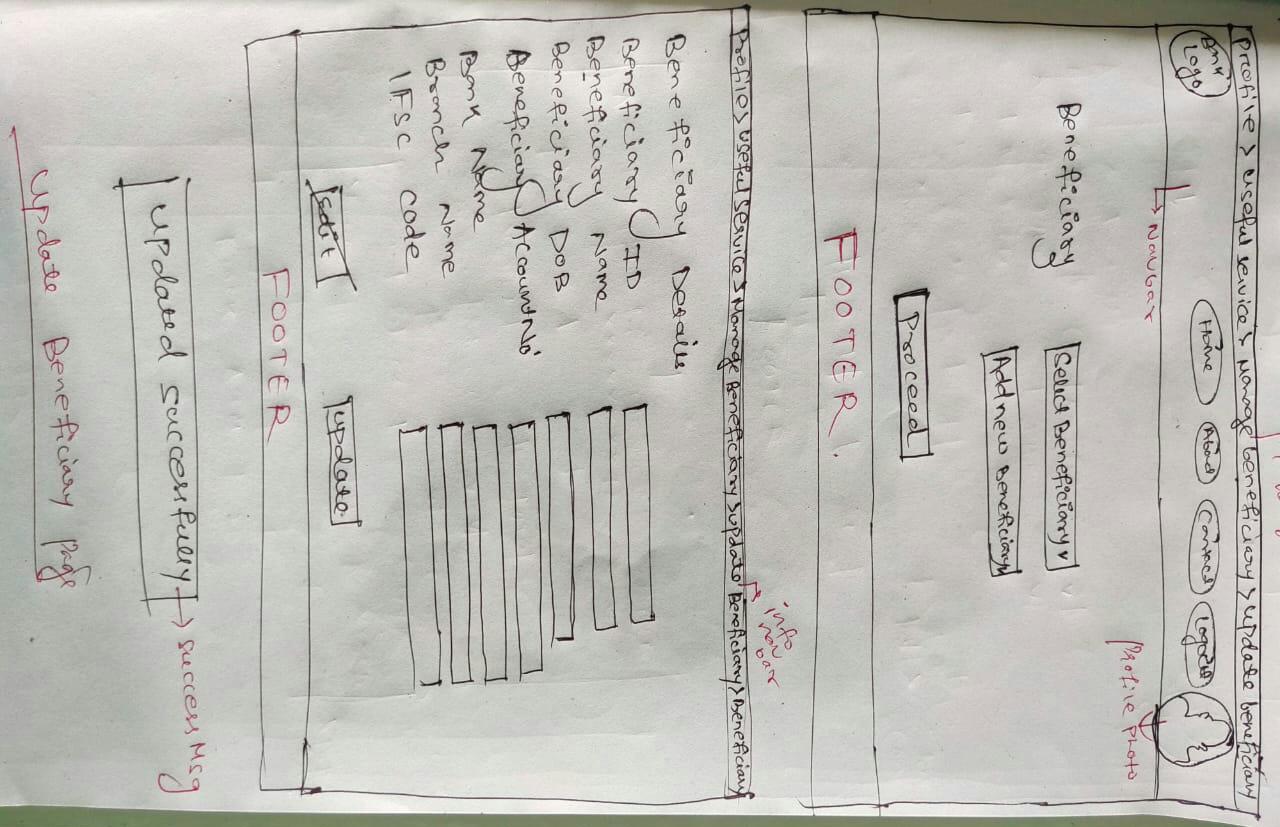 Profile > Useful service > Manage beneficiary > Update beneficiary
Bank Logo
Home About Contact Logout
Navbar
Profile Photo
Beneficiary
Select Beneficiary v
Add new Beneficiary v
Proceed
FOOTER.
info nav bar
Profile > Useful Service > Manage Beneficiary > update Beneficiary > Beneficiary
Beneficiary Details
Beneficiary ID
Beneficiary Name
Beneficiary DOB
Beneficiary Account No
Bank Name
Branch Name
IFSC code
Edit
update
FOOTER
updated successfully
success Msg
update Beneficiary page